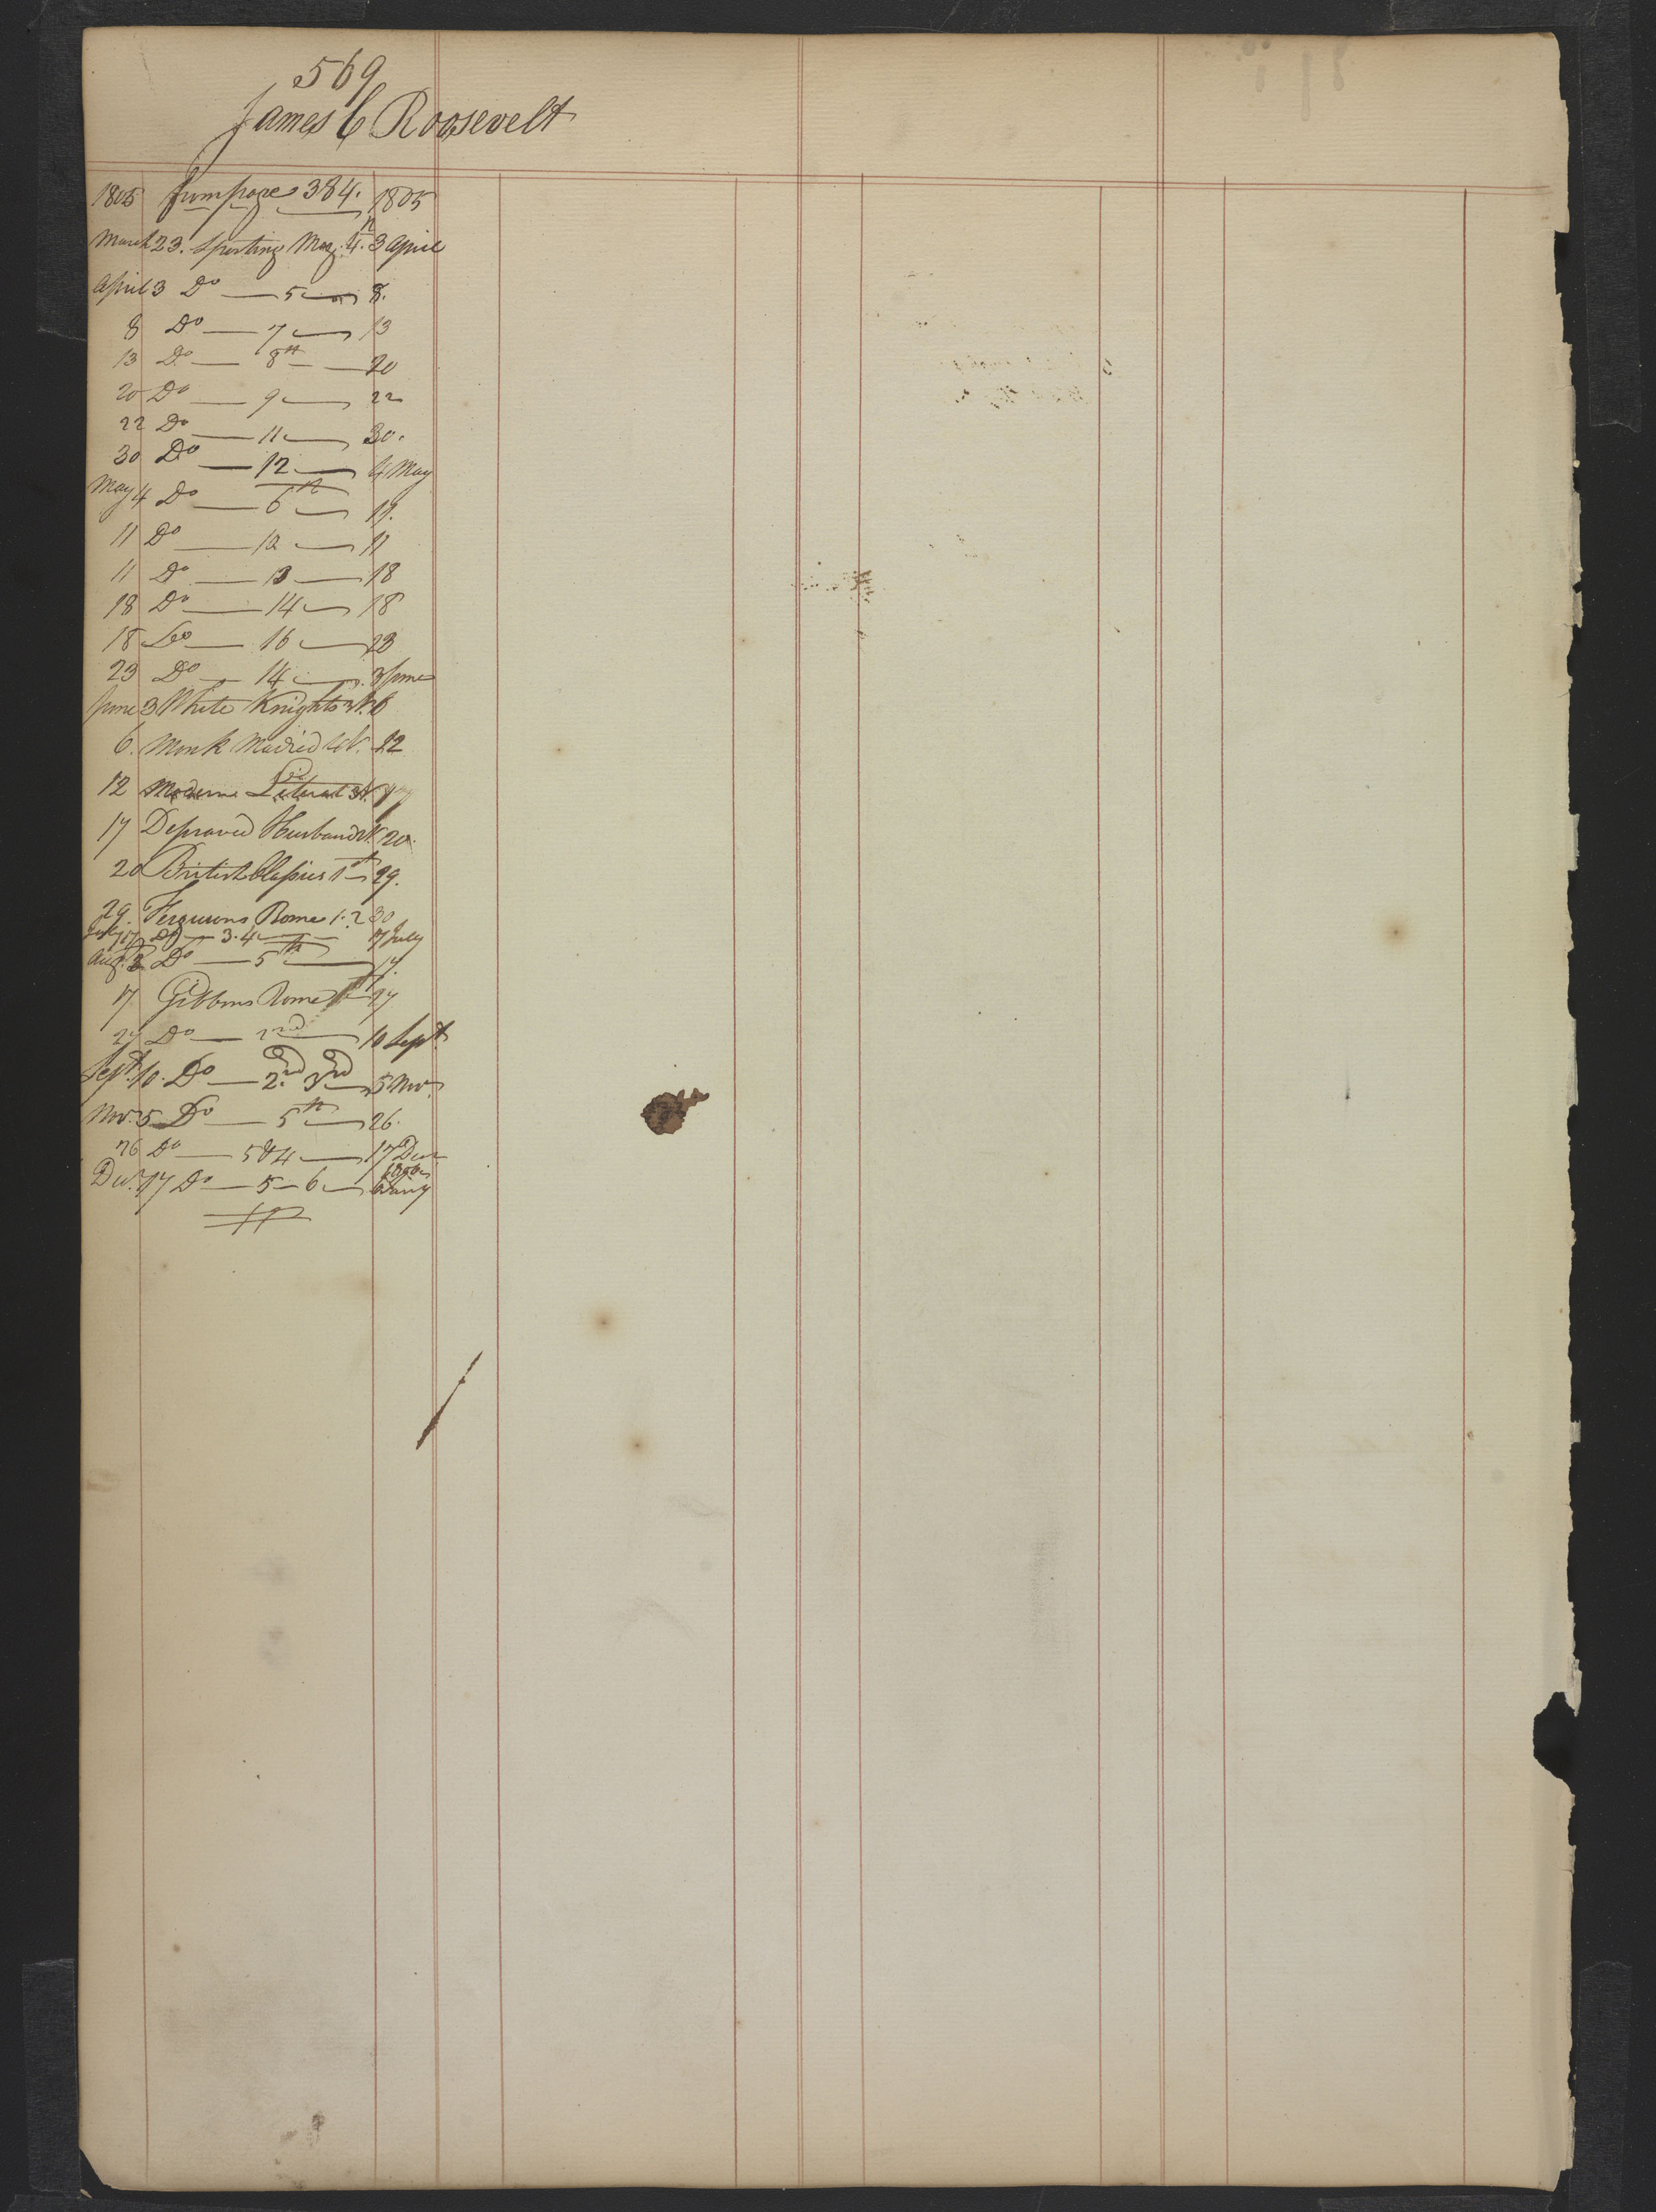 569
James C Roosevelt
1805 from page 384. 1805
March 23. Sporting Mag. 4.th 3 April
April 3 Do — 5 — 8.
8 Do — 7 — 13
13 Do — 8th — 20
20 Do — 9 — 22
22 Do — 11 — 30.
30 Do — 12 — 4 May
May 4 Do — 6th — 11.
11 Do — 12 — 11
11 Do — 13 — 18
18 Do — 14 — 18
18 Do — 16 — 23
23 Do — 14 — 3 June
June 3 White Knights 6
6. Monk Madrid 12
12 Moderne Literat 3 V. 17
17 Depraved Husband 20.
20 British Classics 1st 29.
29. Fergusons Rome 1. 2 30
July 17 Do — 3. 4 — 7 July
Aug. 2 Do — 5th — 17.
17 Gibbons Rome 27
27 Do — 2nd — 10 Sept
Sept. 10. Do — 2nd 3rd — 5 Nov.
Nov. 5 Do — 5th — 26.
26 Do — 5 & 4 — 17 Decr
Dec. 17 Do — 5 – 6 — Jany